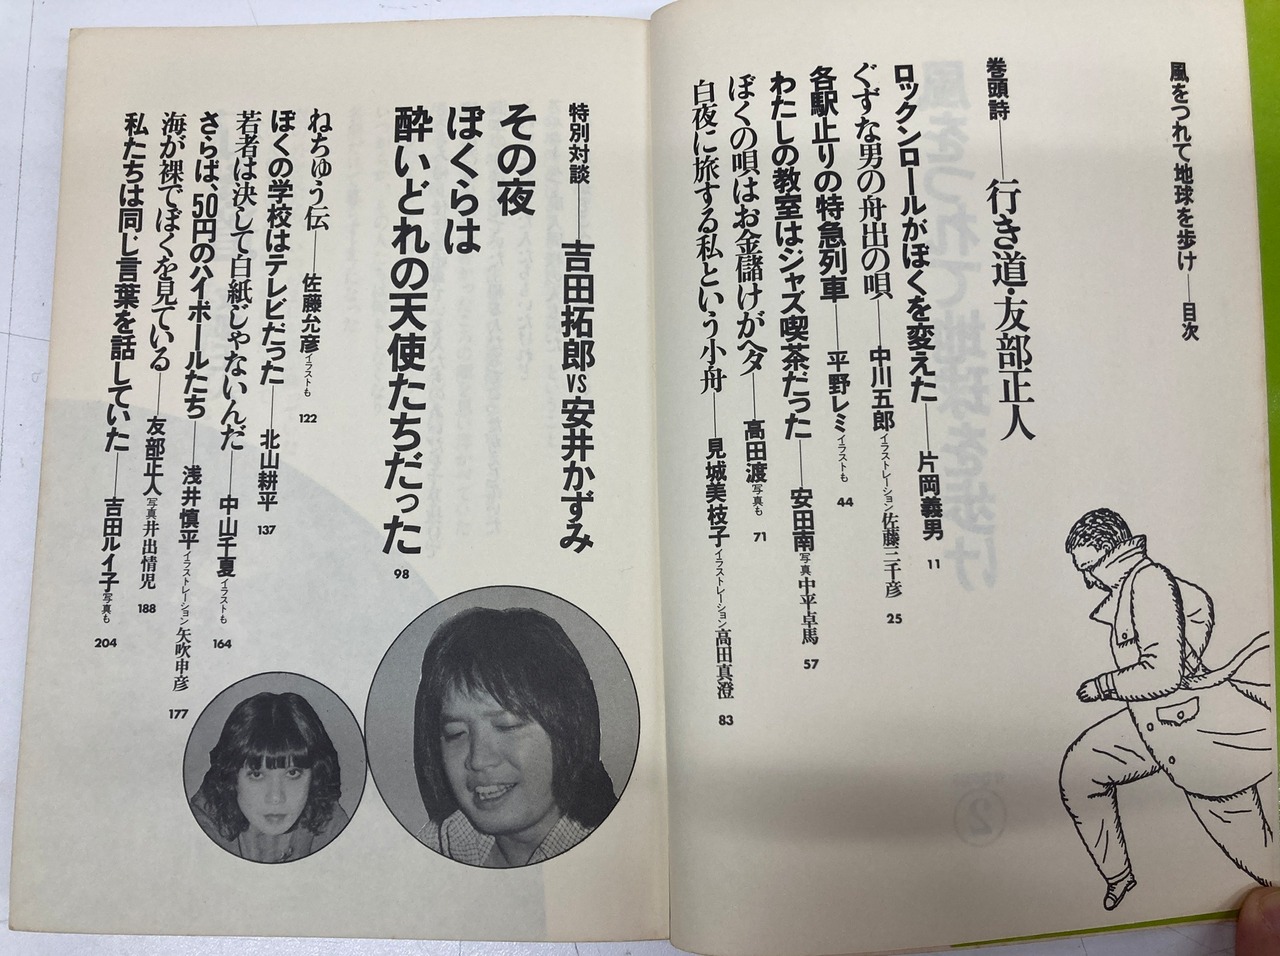 風をつれて地球を歩け——目次
巻頭詩——行き道・友部正人
ロックンロールがぼくを変えた——片岡義男 11
ぐずな男の舟出の唄——中川五郎 イラストレーション 佐藤三千彦 25
各駅止りの特急列車——平野レミ イラストも 44
わたしの教室はジャズ喫茶だった——安田南 写真 中平卓馬 57
ぼくの唄はお金儲けがヘタ——高田渡 写真も 71
白夜に旅する私という小舟——見城美枝子 イラストレーション 高田真澄 83
特別対談——吉田拓郎VS安井かずみ
その夜
ぼくらは
酔いどれの天使たちだった 98
ねちゅう伝——佐藤允彦 イラストも 122
ぼくの学校はテレビだった——北山耕平 137
若者は決して白紙じゃないんだ——中山千夏 イラストも 164
さらば、50円のハイボールたち——浅井慎平 イラストレーション 矢吹申彦 177
海が裸でぼくを見ている——友部正人 写真 井出情児 188
私たちは同じ言葉を話していた——吉田ルイ子 写真も 204